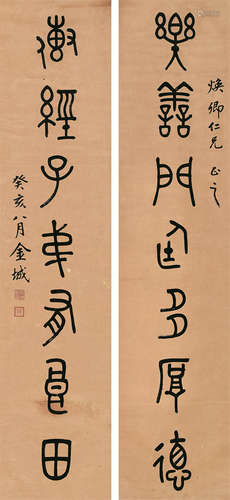 樂善門廷多厚德
煥卿仁兄 正之
傳經子弟有良田
癸亥八月金城